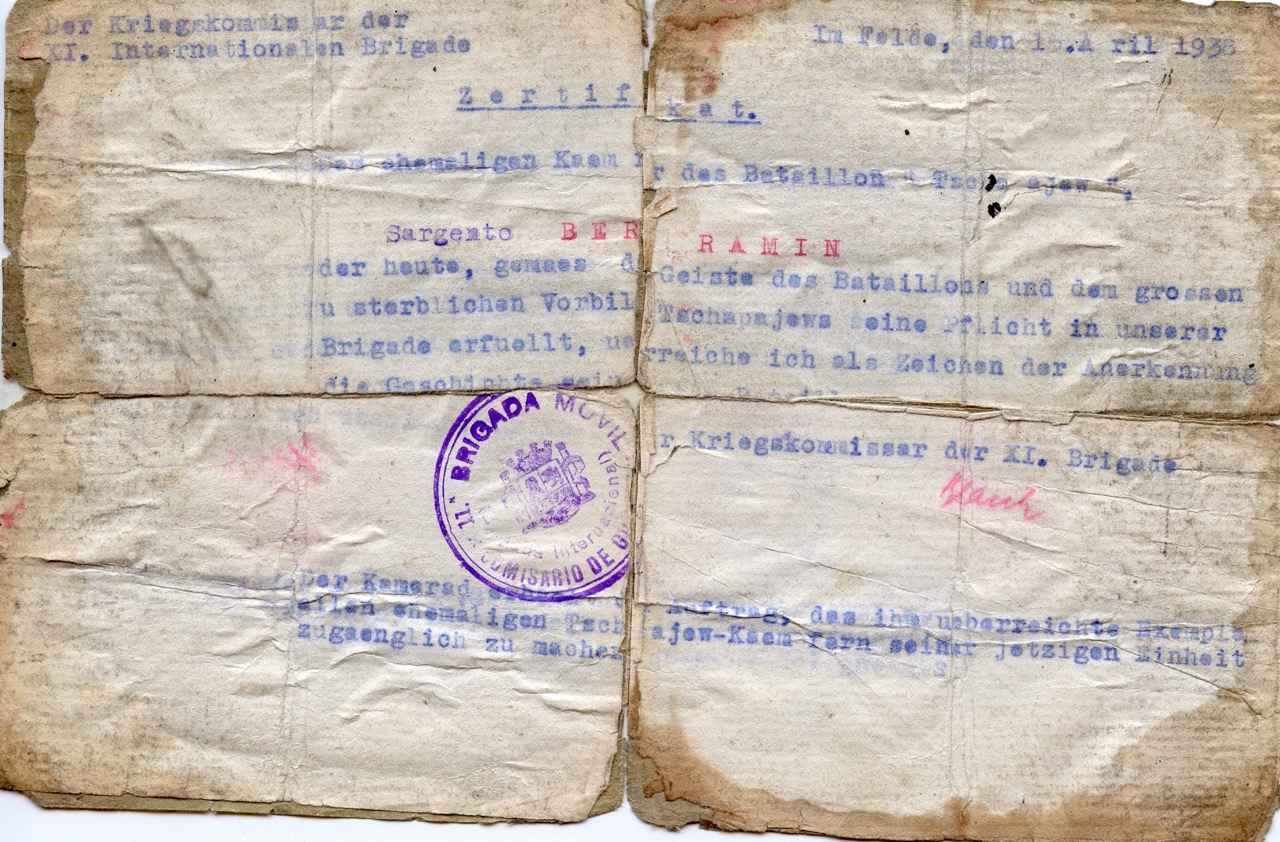 Der Kriegskommis ar der
XI. Internationalen Brigade
Im Felde, den 1 .A ril 1938
Z e r t i f k a t.
Dem ehemaligen Kaem r des Bataillon " Tsch ajew ",
Sargento B E R R A M I N
der heute, gemaess d Geiste des Bataillons und dem grossen
u sterblichen Vorbil Tschapajews seine Pflicht in unserer
Brigade erfuellt, ue rreiche ich als Zeichen der Anerkennung
die Geschichte sein Bataill
r Kriegskommissar der XI. Brigade
BRIGADA MOVIL
11.ª COMISARIO DE
Internacional
Der Kamerad Auftrag, das ihm ueberreichte Exempla
allen ehemaligen Tsch ajew-Kaem fern seiner jetzigen Einheit
zugaenglich zu machen